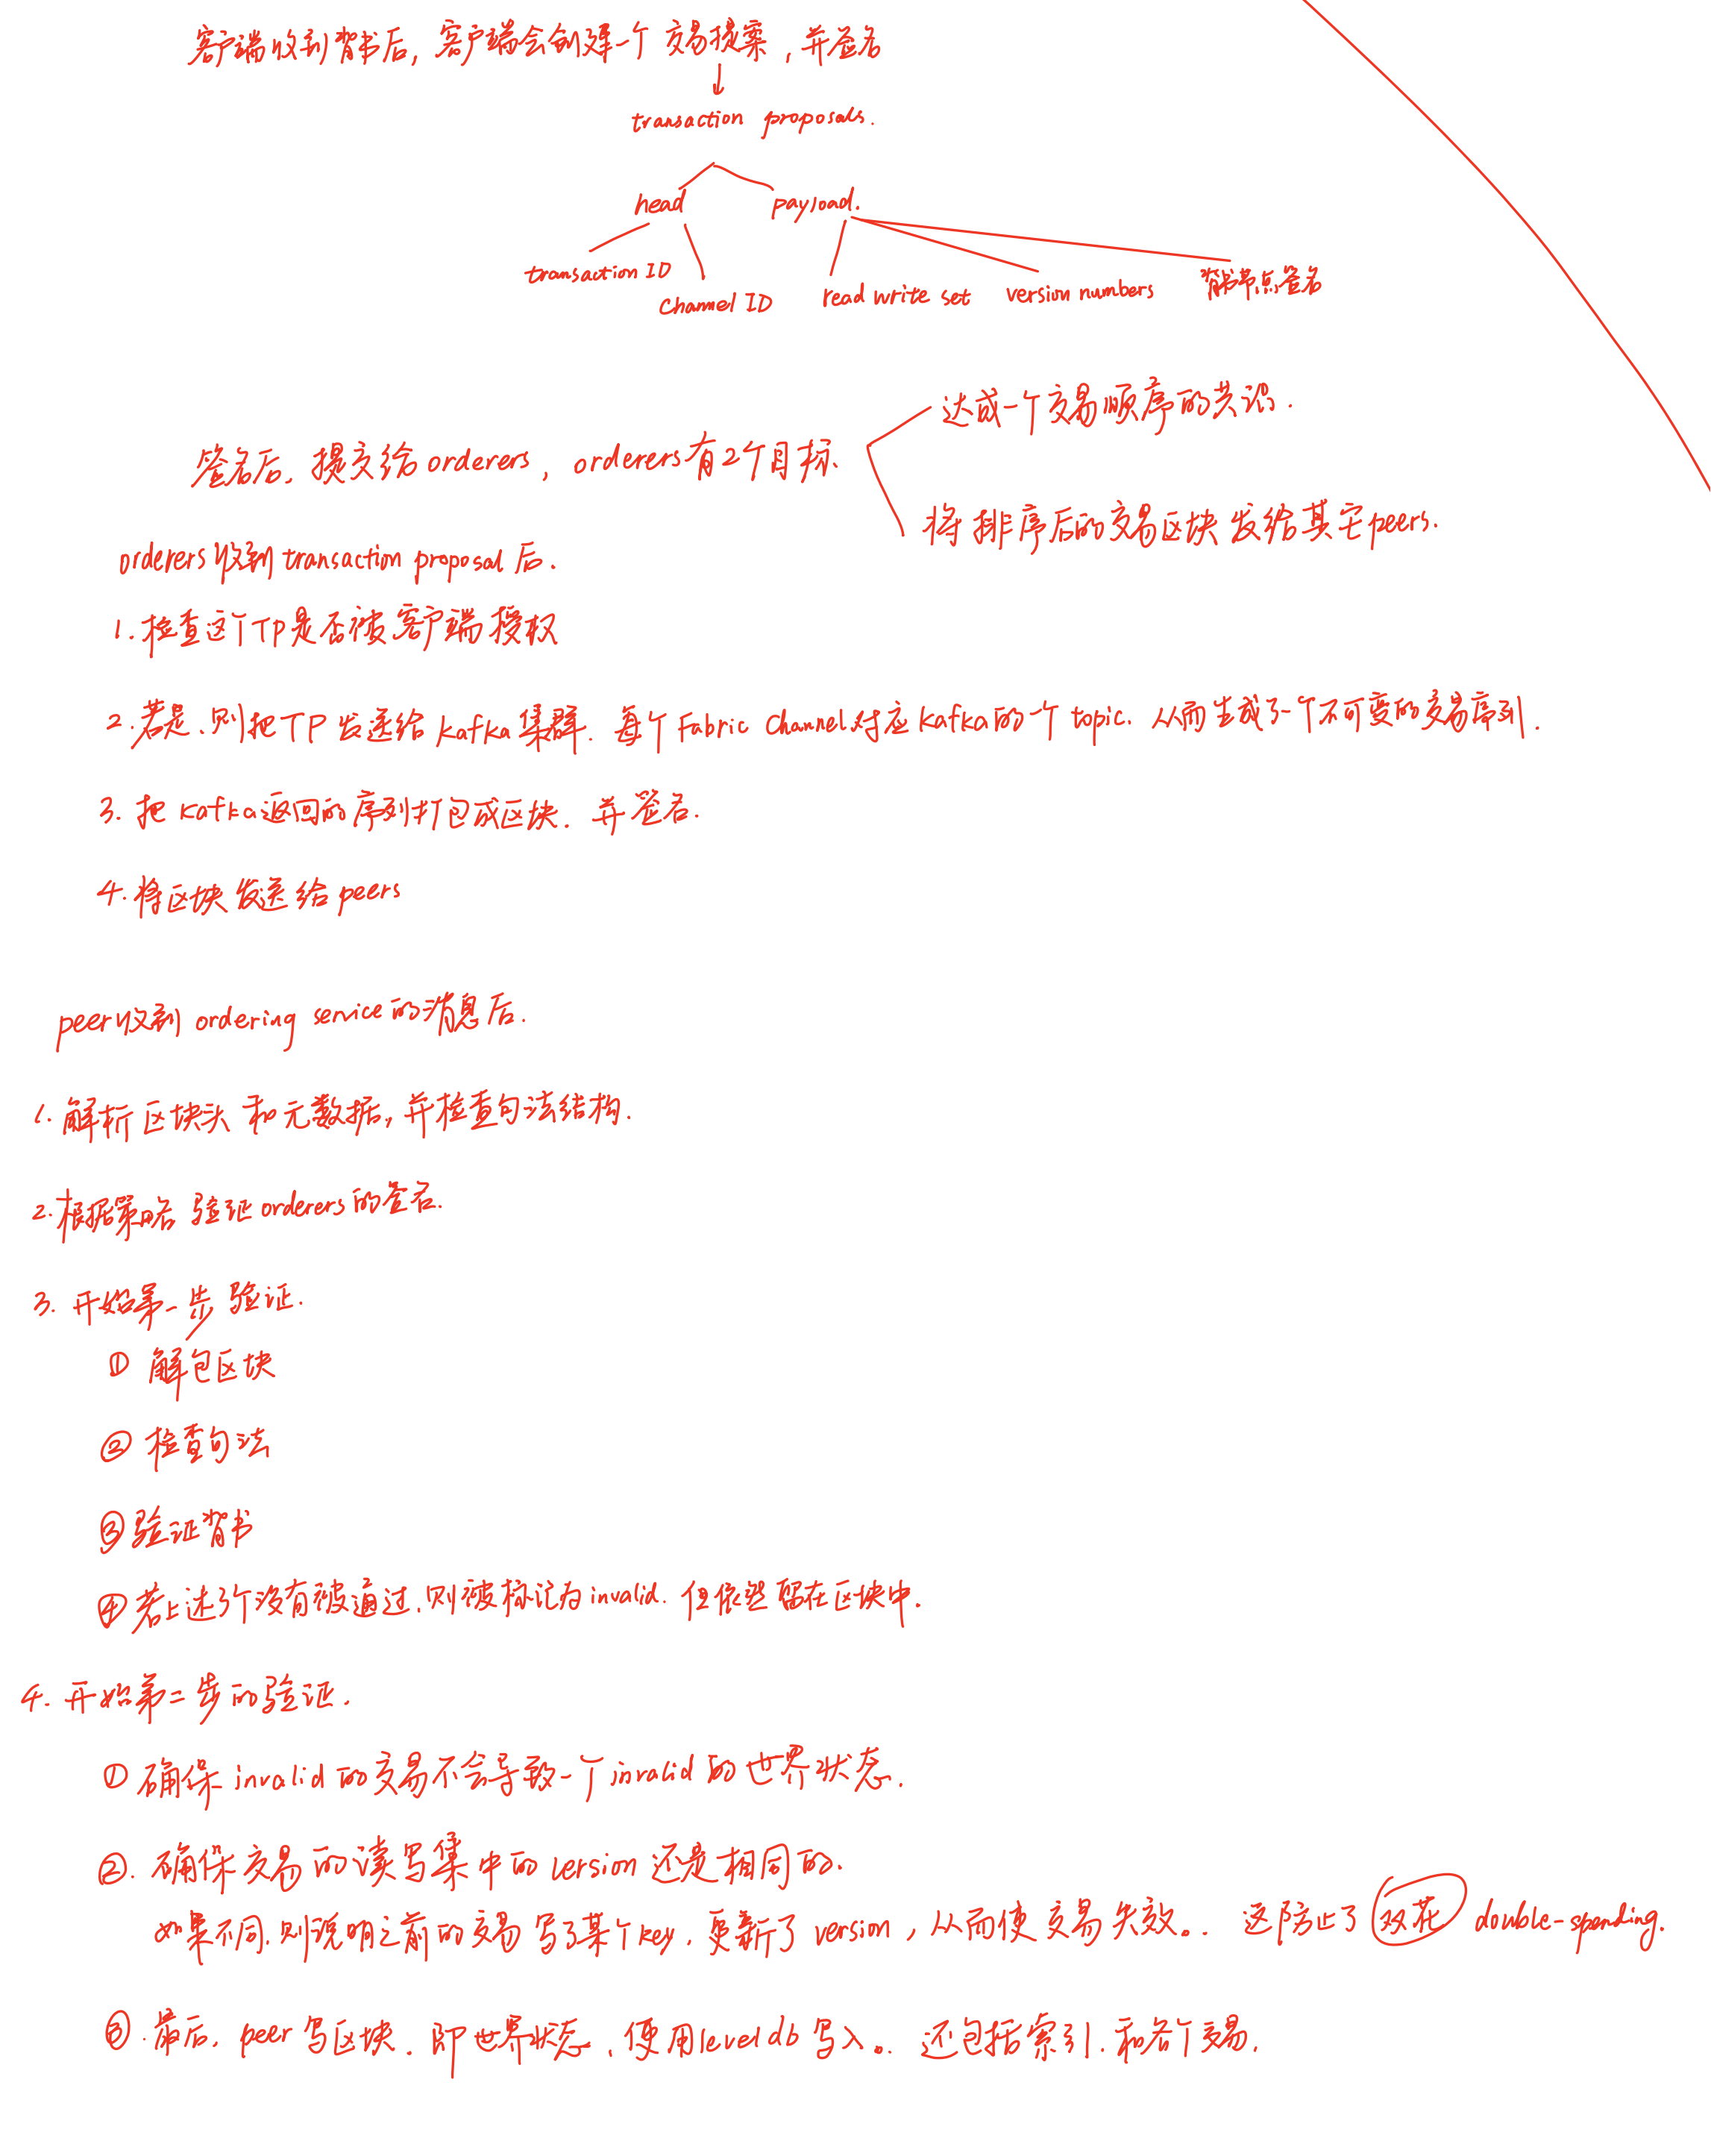 客户端收到背书后, 客户端会创建一个 交易提案, 并签名
transaction proposals.
head payload.
transaction ID Channel ID read write set version numbers 背书节点签名
达成一个交易顺序的共识.
签名后, 提交给 orderers, orderers有2个目标.
将排序后的交易区块 发给其它peers.
orderers收到 transaction proposal 后.
1. 检查这个TP是否被客户端授权
2. 若是, 则把TP发送给 kafka 集群. 每个Fabric Channel对应kafka的一个 topic. 从而生成了一个不可变的交易序列.
3. 把 kafka返回的序列打包成区块. 并签名.
4. 将区块发送给 peers
peer收到 ordering service的消息后.
1. 解析区块头 和元数据, 并检查句法结构.
2. 根据策略 验证orderers的签名.
3. 开始第一步 验证.
① 解包区块
② 检查句法
③ 验证背书
④ 若上述3个没有被通过, 则被标记为invalid. 但依然留在区块中.
4. 开始第二步的验证.
① 确保 invalid 的交易不会导致一个invalid 的世界状态.
②. 确保交易的读写集中的version还是相同的.
如果不同, 则说明之前的交易写了某个key, 更新了 version, 从而使交易失效。. 这防止了 双花 double-spending.
③. 最后, peer 写区块. 即世界状态, 使用leveldb 写入。. 还包括索引. 和各个交易.